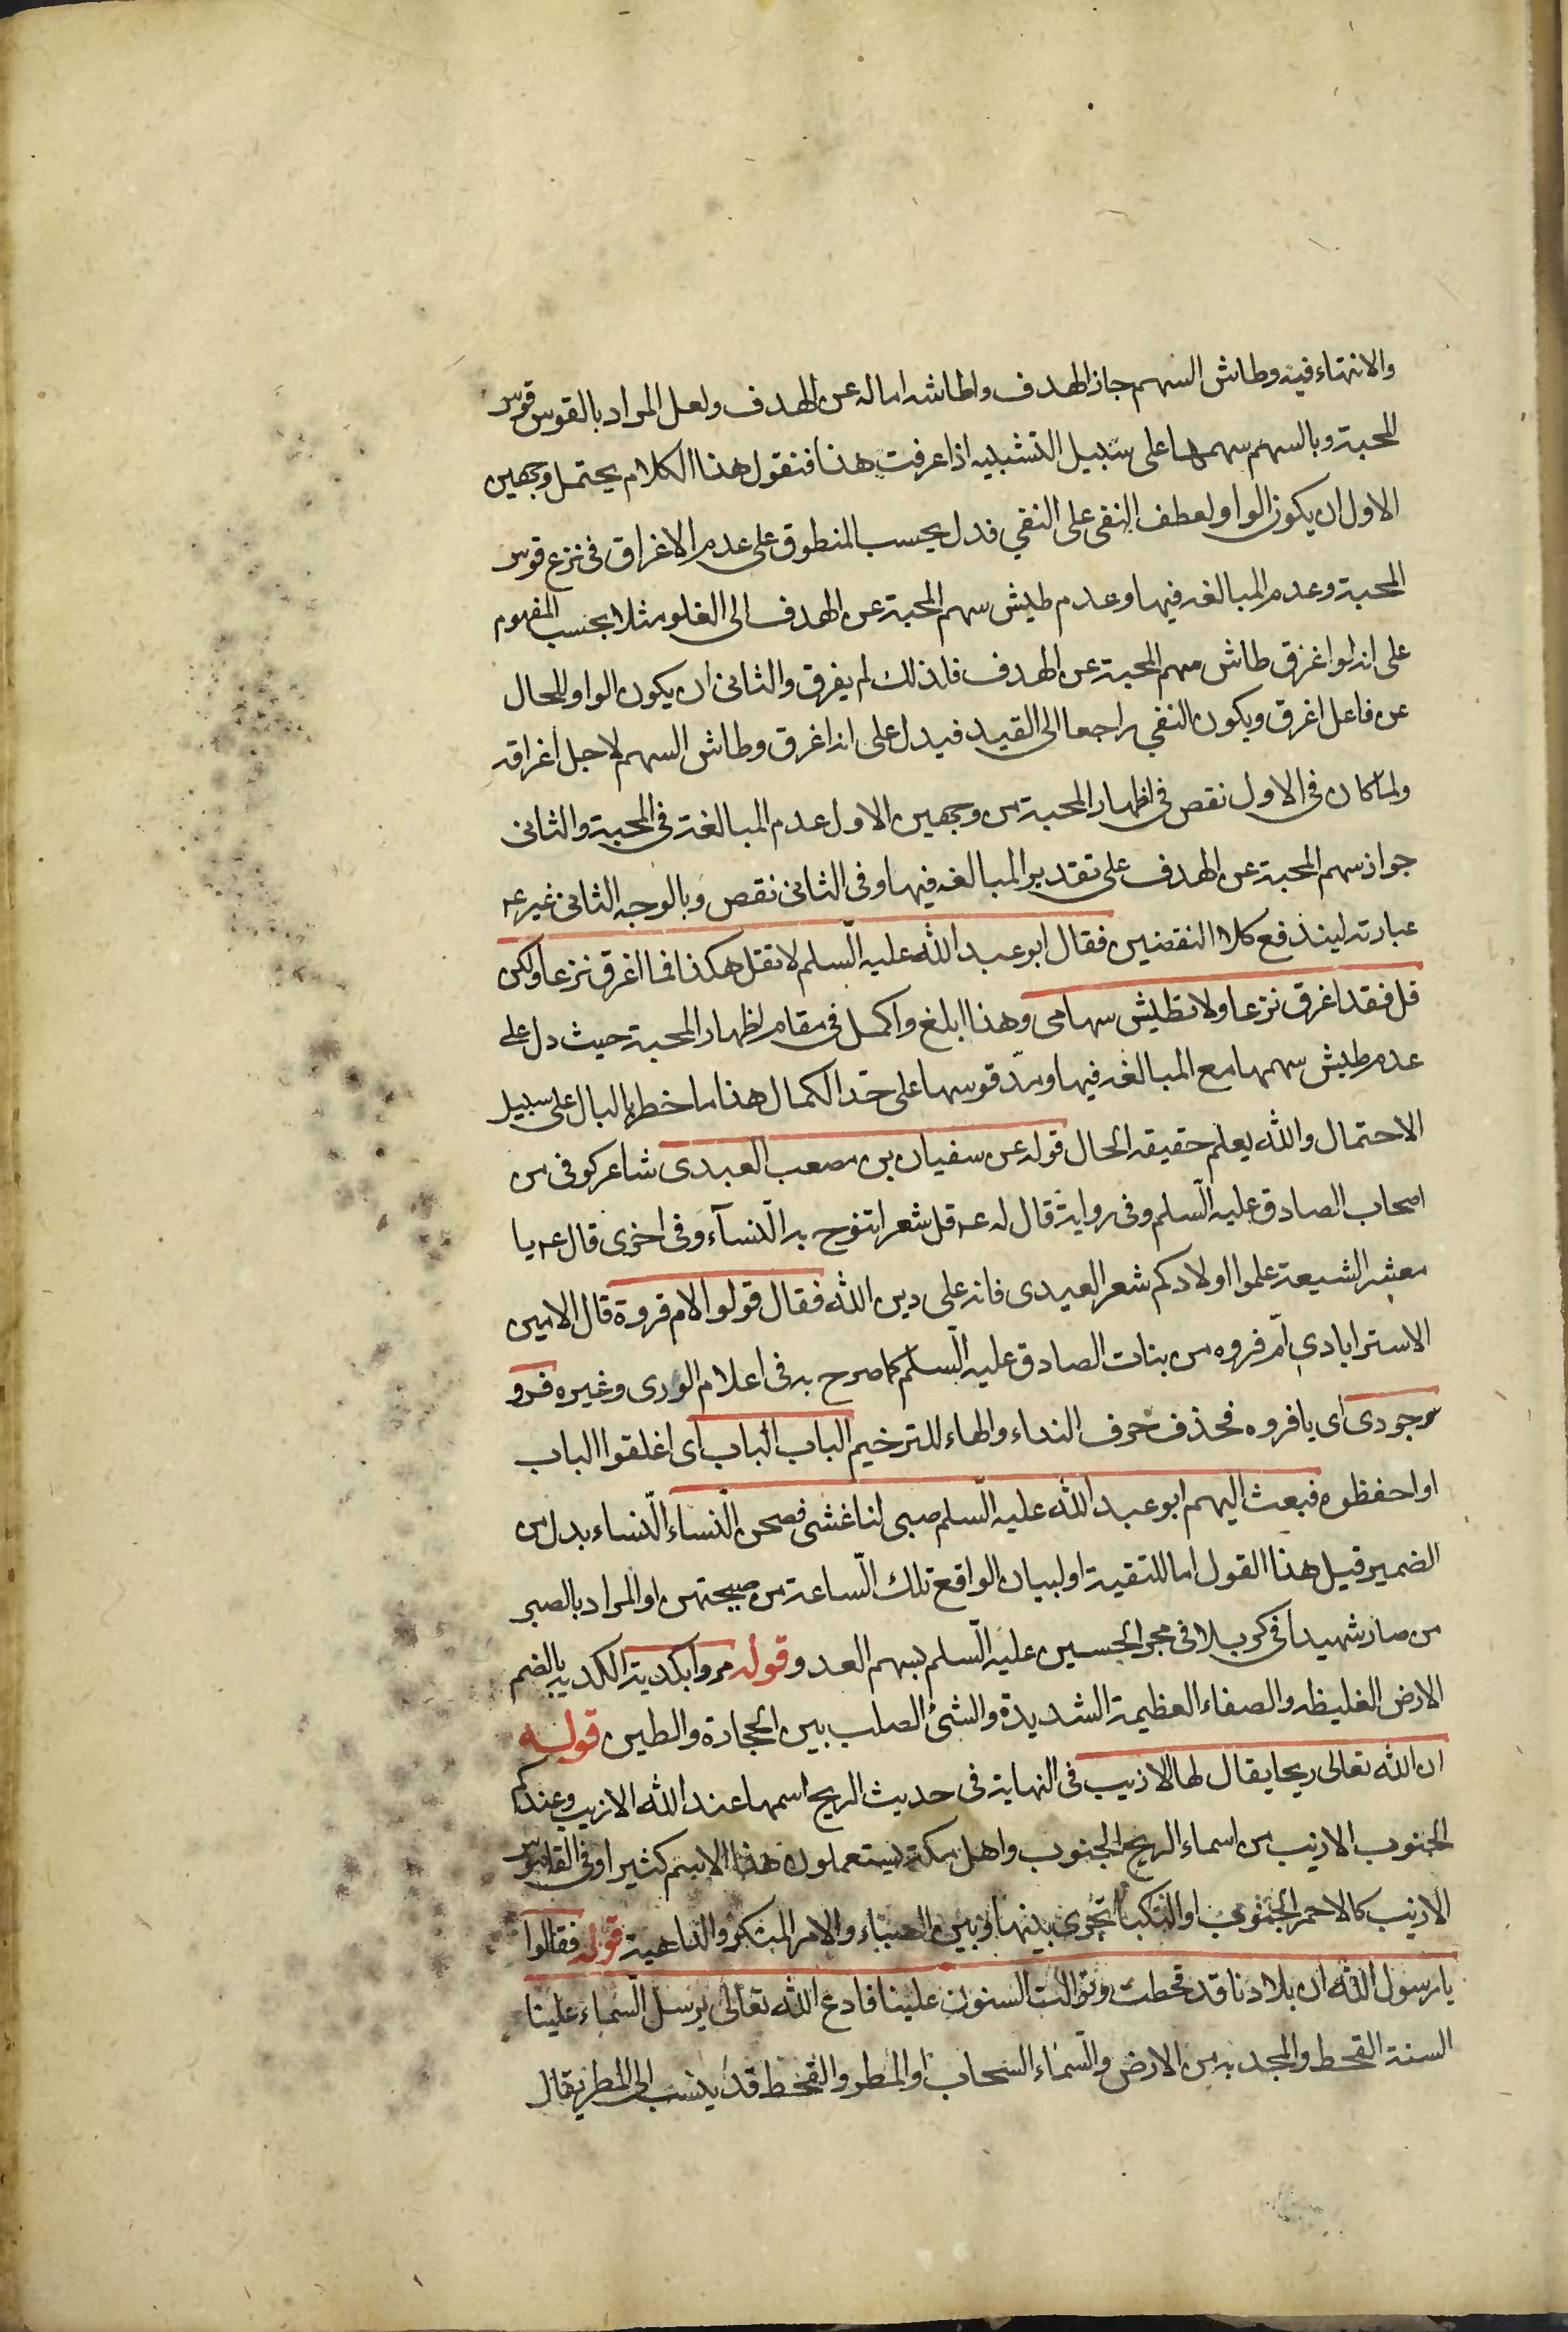 والانتهاء فيه وطاش السهم جاز الهدف واطاشه اماله عن الهدف ولعل المراد بالقوس قوس
المحبة وبالسهم سهمها على سبيل التشبيه اذا عرفت هذا فنقول هذا الكلام يحتمل وجهين
الاول ان يكون الواو لعطف النفي على النفي فدل بحسب المنطوق على عدم الاغراق في نزع قوس
المحبة وعدم المبالغه فيها وعدم طيش سهم المحبة عن الهدف الى الغلو مثلا بحسب المفهوم
على انه لو اغرق طاش سهم المحبة عن الهدف فلذلك لم يغرق والثاني ان يكون الواو للحال
عن فاعل اغرق ويكون النفي راجعا الى القيد فيدل على انه اغرق وطاش السهم لاجل اغراقه
ولما كان في الاول نقص في اظهار المحبة من وجهين الاول عدم المبالغة في المحبة والثاني
جواز سهم المحبة عن الهدف على تقدير المبالغه فيها وفي الثاني نقص وبالوجه الثاني غير ع
عبارته ليندفع كلا النقضين فقال ابو عبد الله عليه السلم لا تقل هكذا فما اغرق نزعا ولكن
قل فقد اغرق نزعا ولا تطيش سهامى وهذا ابلغ واكمل في مقام اظهار المحبة حيث دل على
عدم طيش سهمها مع المبالغه فيها ومد قوسها على حد الكمال هذا ما خطر بالبال على سبيل
الاحتمال والله يعلم حقيقه الحال قوله عن سفيان بن مصعب العبدى شاعر كوفي من
اصحاب الصادق عليه السلم وفي رواية قال له ع قل شعرا تنوح به النسآء وفي اخرى قال ع يا
معشر الشيعة علموا اولادكم شعر العبدى فانه على دين الله فقال قولوا لام فروة قال الامين
الاسترابادي ام فروه من بنات الصادق عليه السلم كما صرح به في اعلام الورى وغيره فرو
جودى اى يا فروه فحذف حرف النداء والهاء للترخيم الباب الباب اى اغلقوا الباب
او احفظوه فبعث اليهم ابو عبد الله عليه السلم صبى لنا غشى فصحن النساء النساء بدل من
الضمير قيل هذا القول اما للتقية او لبيان الواقع تلك الساعة من صيحتهن او المراد بالصبى
من صار شهيدا في كربلا في حجر الحسين عليه السلم بسهم العدو قوله مروا بكدية الكدية بالضم
الارض الغليظه والصفاء العظيمة الشديدة والشئ الصلب بين الحجارة والطين قوله
ان الله تعالى ريحا يقال لها الازيب في النهاية في حديث الريح اسمها عند الله الازيب وعندكم
الجنوب الازيب من اسماء الريح الجنوب واهل مكة يستعملون هذا الاسم كثيرا وفي القاموس
الازيب كالاحمر الجنوب او النكبا تجرى بينها وبين الصباء والامر المنكر والداهية قوله فقالوا
يا رسول الله ان بلادنا قد قحطت وتوالت السنون علينا فادع الله تعالى يرسل السماء علينا
السنة القحط والمجدبة من الارض والسماء السحاب او المطر والقحط قد ينسب الى المطر يقال